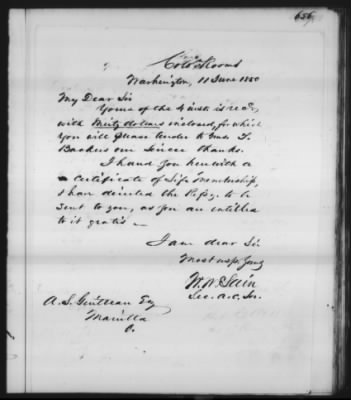 656
Colo. Rooms
Washington, 11 June 1850
My Dear Sir
Yours of the 4 inst. is recd,
with dollars inclosed, for which
you will please tender to Backers our sincere thanks.
I hand you herewith a
Certificate of Life Membership,
& have directed the Reposy. to be
sent to you, as you are entitled
to it gratis —
I am dear Sir
Most resp. Yours
W. McLain
Sec. A. C. So.
A. S. Esq
O.